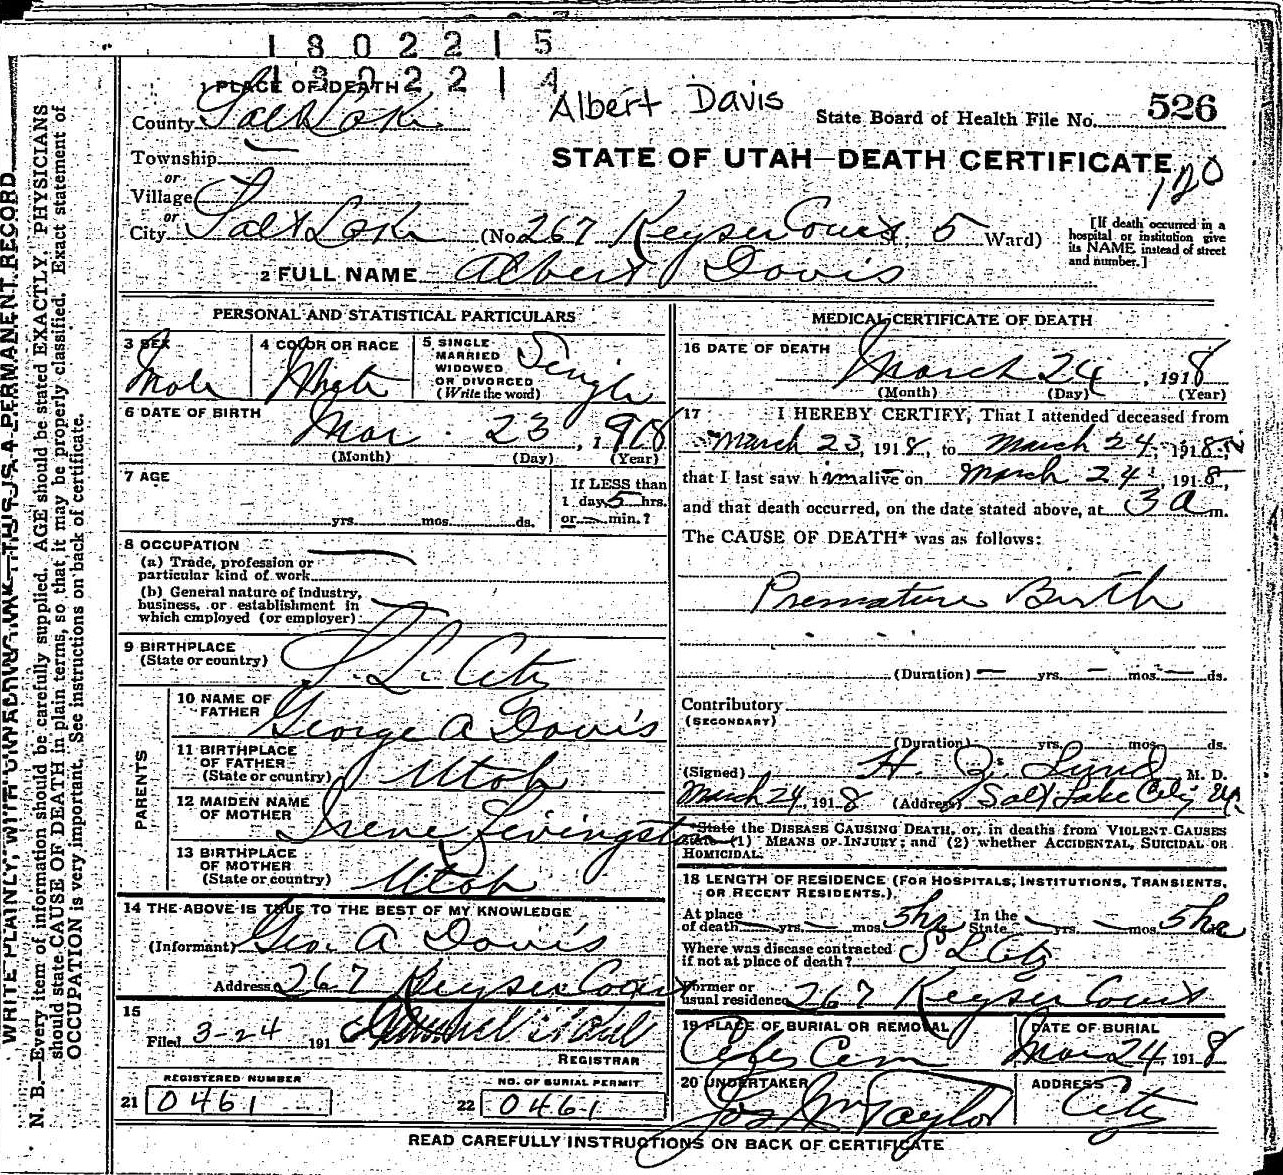 1802215
1802214
Albert Davis
526
State Board of Health File No.
STATE OF UTAH—DEATH CERTIFICATE
120
1 PLACE OF DEATH
County Salt Lake
Township
or
Village
or
City Salt Lake (No. 267 Keyser Court St; 5 Ward)
[If death occurred in a hospital or institution give its NAME instead of street and number.]
2 FULL NAME Albert Davis
PERSONAL AND STATISTICAL PARTICULARS
3 SEX
Male
4 COLOR OR RACE
White
5 SINGLE
MARRIED
WIDOWED
OR DIVORCED
(Write the word)
Single
6 DATE OF BIRTH
Mar 23, 1918
(Month) (Day) (Year)
7 AGE
yrs. mos. ds.
If LESS than
1 day 5 hrs.
or — min.?
8 OCCUPATION
(a) Trade, profession or
particular kind of work
(b) General nature of industry,
business, or establishment in
which employed (or employer)
9 BIRTHPLACE
(State or country)
S. L. City
PARENTS
10 NAME OF
FATHER
George A Davis
11 BIRTHPLACE
OF FATHER
(State or country)
Utah
12 MAIDEN NAME
OF MOTHER
Irene Livingston
13 BIRTHPLACE
OF MOTHER
(State or country)
Utah
14 THE ABOVE IS TRUE TO THE BEST OF MY KNOWLEDGE
(Informant) Geo. A Davis
Address 267 Keyser Court
15
Filed 3-24 191
REGISTRAR
REGISTERED NUMBER
21 0461
NO. OF BURIAL PERMIT
22 0461
MEDICAL CERTIFICATE OF DEATH
16 DATE OF DEATH
March 24, 1918
(Month) (Day) (Year)
17 I HEREBY CERTIFY, That I attended deceased from
March 23, 1918, to March 24, 1918
that I last saw him alive on March 24, 1918,
and that death occurred, on the date stated above, at 3 a m.
The CAUSE OF DEATH* was as follows:
Premature Birth
(Duration) — yrs. — mos. — ds.
Contributory
(SECONDARY)
(Duration) yrs. mos. ds.
(Signed) H. Z. Lund M. D.
March 24, 1918 (Address) Salt Lake City Ut.
*State the DISEASE CAUSING DEATH, or, in deaths from VIOLENT CAUSES
state (1) MEANS OF INJURY; and (2) whether ACCIDENTAL, SUICIDAL OR
HOMICIDAL.
18 LENGTH OF RESIDENCE (FOR HOSPITALS, INSTITUTIONS, TRANSIENTS,
OR RECENT RESIDENTS.)
At place
of death — yrs. — mos. 5 hrs In the
State — yrs. — mos. 5 hrs
Where was disease contracted
if not at place of death? S L City
Former or
usual residence 267 Keyser Court
19 PLACE OF BURIAL OR REMOVAL
City Cem
DATE OF BURIAL
Mar 24 1918
20 UNDERTAKER
Jos Wm Taylor
ADDRESS
City
READ CAREFULLY INSTRUCTIONS ON BACK OF CERTIFICATE
WRITE PLAINLY, WITH UNFADING INK—THIS IS A PERMANENT RECORD
N. B.—Every item of information should be carefully supplied. AGE should be stated EXACTLY. PHYSICIANS
should state CAUSE OF DEATH in plain terms, so that it may be properly classified. Exact statement of
OCCUPATION is very important. See instructions on back of certificate.